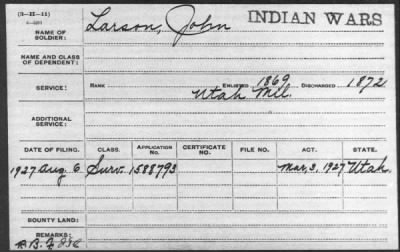 (3—H—11)
INDIAN WARS
NAME OF SOLDIER: Larson, John
NAME AND CLASS OF DEPENDENT:
SERVICE: RANK ENLISTED 1869 DISCHARGED 1872
Utah Mil.
ADDITIONAL SERVICE:
DATE OF FILING. CLASS. APPLICATION No. CERTIFICATE NO. FILE NO. ACT. STATE.
1927 Aug. 6 Surv. 1588793 Mar. 3, 1927 Utah
BOUNTY LAND:
REMARKS: